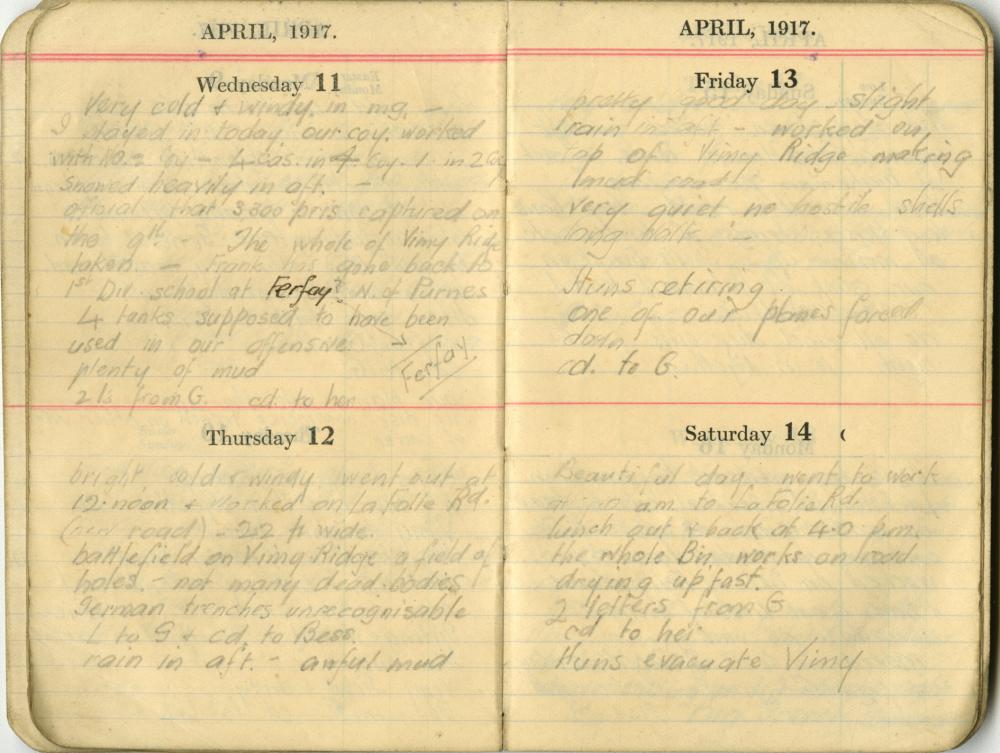 APRIL, 1917.
Wednesday 11
Very cold & windy in mg. -
I stayed in today our coy. worked
with No. 2 Coy - 4 cas. in 4 Coy. 1 in 2 Coy
snowed heavily in aft. -
official that 3300 pris captured on
the 9th - The whole of Vimy Ridge
taken. - Frank has gone back to
1st Div. school at Ferfay N. of Purnes
4 tanks supposed to have been
used in our offensive
plenty of mud
Ferfay
2 ls from G. cd. to her
Thursday 12
bright cold & windy went out at
12. noon & worked on La Folie Rd.
(new road) - 22 ft wide.
battlefield on Vimy Ridge a field of
holes. - not many dead bodies
German trenches unrecognisable
L to G & cd. to Bess.
rain in aft. - awful mud
APRIL, 1917.
Friday 13
pretty good day - slight
rain in aft - worked on
top of Vimy Ridge making
mud road
very quiet no hostile shells
long halts -
Huns retiring.
one of our planes forced
down
cd. to G.
Saturday 14
Beautiful day, went to work
at am to La Folie Rd.
lunch out & back at 4.0 p.m.
the whole Bn. works on road
drying up fast.
2 letters from G
cd to her
Huns evacuate Vimy